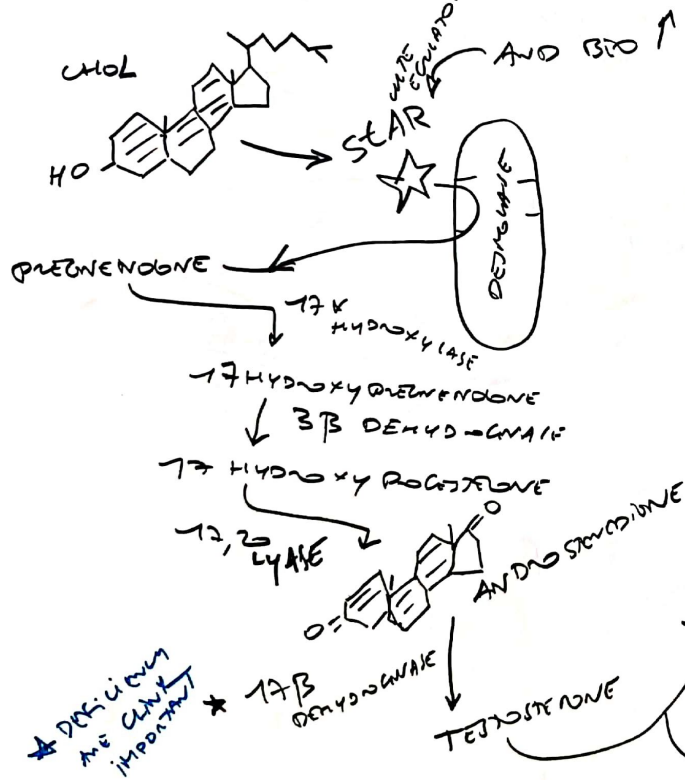 CHOL
HO
StAR
AND BIO ↑
DESMOLASE
PREGNENOLONE
17α
HYDROXYLASE
17 HYDROXYPREGNENOLONE
3β DEHYDROGNASE
17 HYDROXYPROGESTERONE
17,20
LYASE
O
O=
ANDROSTENEDIONE
★ 17β
DEHYDROGNASE
TESTOSTERONE
★ DEFICIENCY
ARE CLINK
IMPORTANT